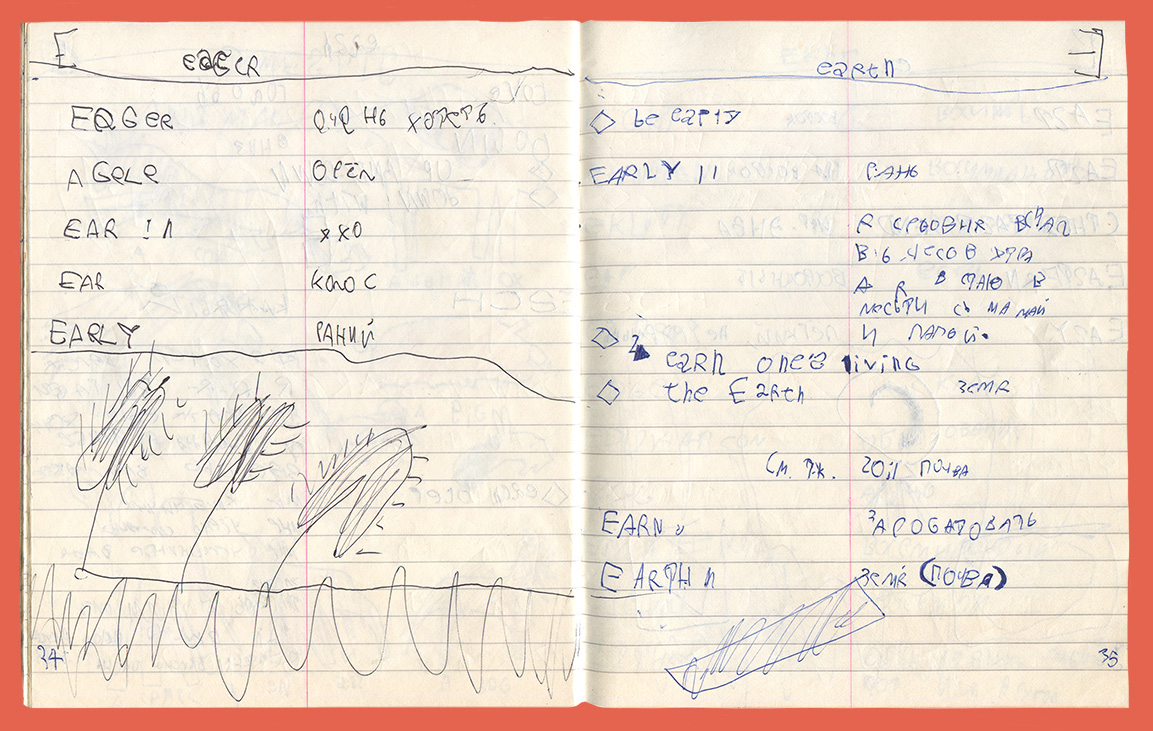 E
EAGER ОЧӘ НЬ ХОТЕТЬ
AGELE ОРЁЛ
EAR 1 n УХО
EAR КОЛОС
EARLY РАНИЙ
34
earth
be earty
EARLY 11 РАНЬ
В 6 ЧЕСОВ УТРА
А Я ВСТАЮ В
МЕСТИ С МАМАЙ
И ПАПОЙ.
2 earn ones living
the Earth ЗЕМЯ
См. тж. soil ПОЧВА
EARN v ЗАРОБАТОВАТЬ
EARTH n ЗЕМЯ (ПОЧВА)
35